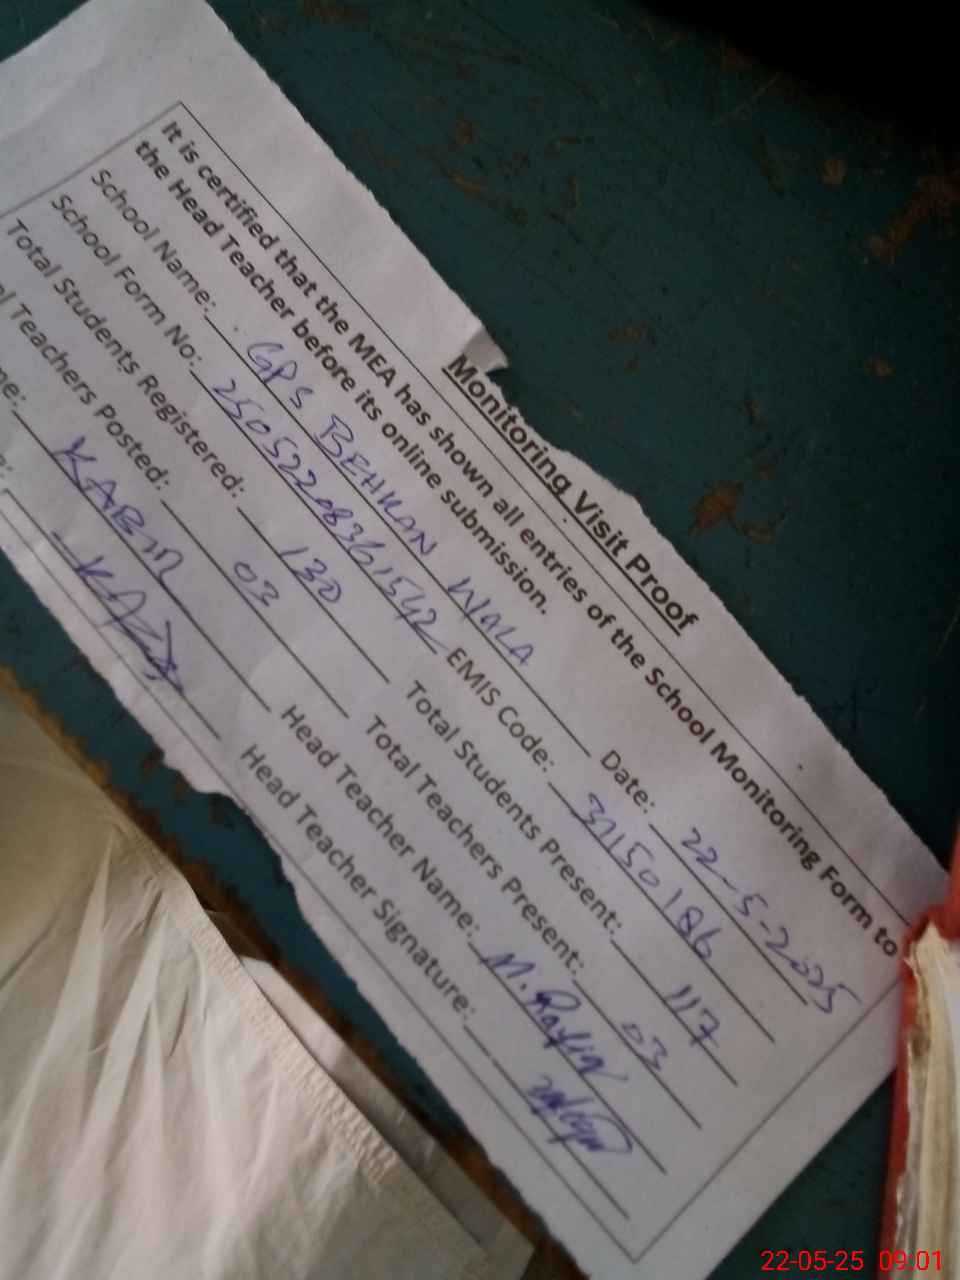 Monitoring Visit Proof
It is certified that the MEA has shown all entries of the School Monitoring Form to
the Head Teacher before its online submission.
School Name: GPS BEHKAN WALA Date: 22-5-2025
School Form No: 25052208361542 EMIS Code: 31150186
Total Students Registered: 130 Total Students Present: 117
Teachers Posted: 03 Total Teachers Present: 03
KABIR Head Teacher Name: M. Rafiq
Head Teacher Signature:
22-05-25 09:01